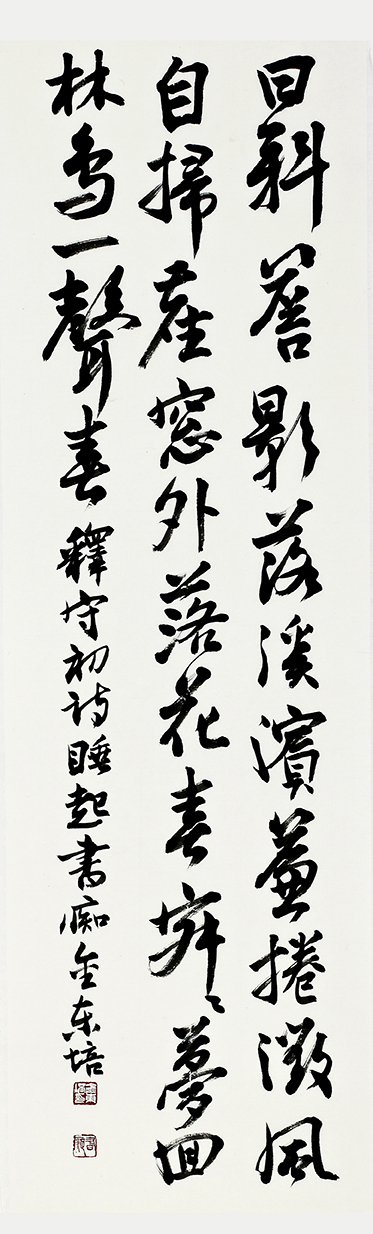 日斜簷影落溪濱簾捲微風
自掃塵窓外落花春寂〻夢回
林鳥一聲春 釋守初詩睡起書痴金東培